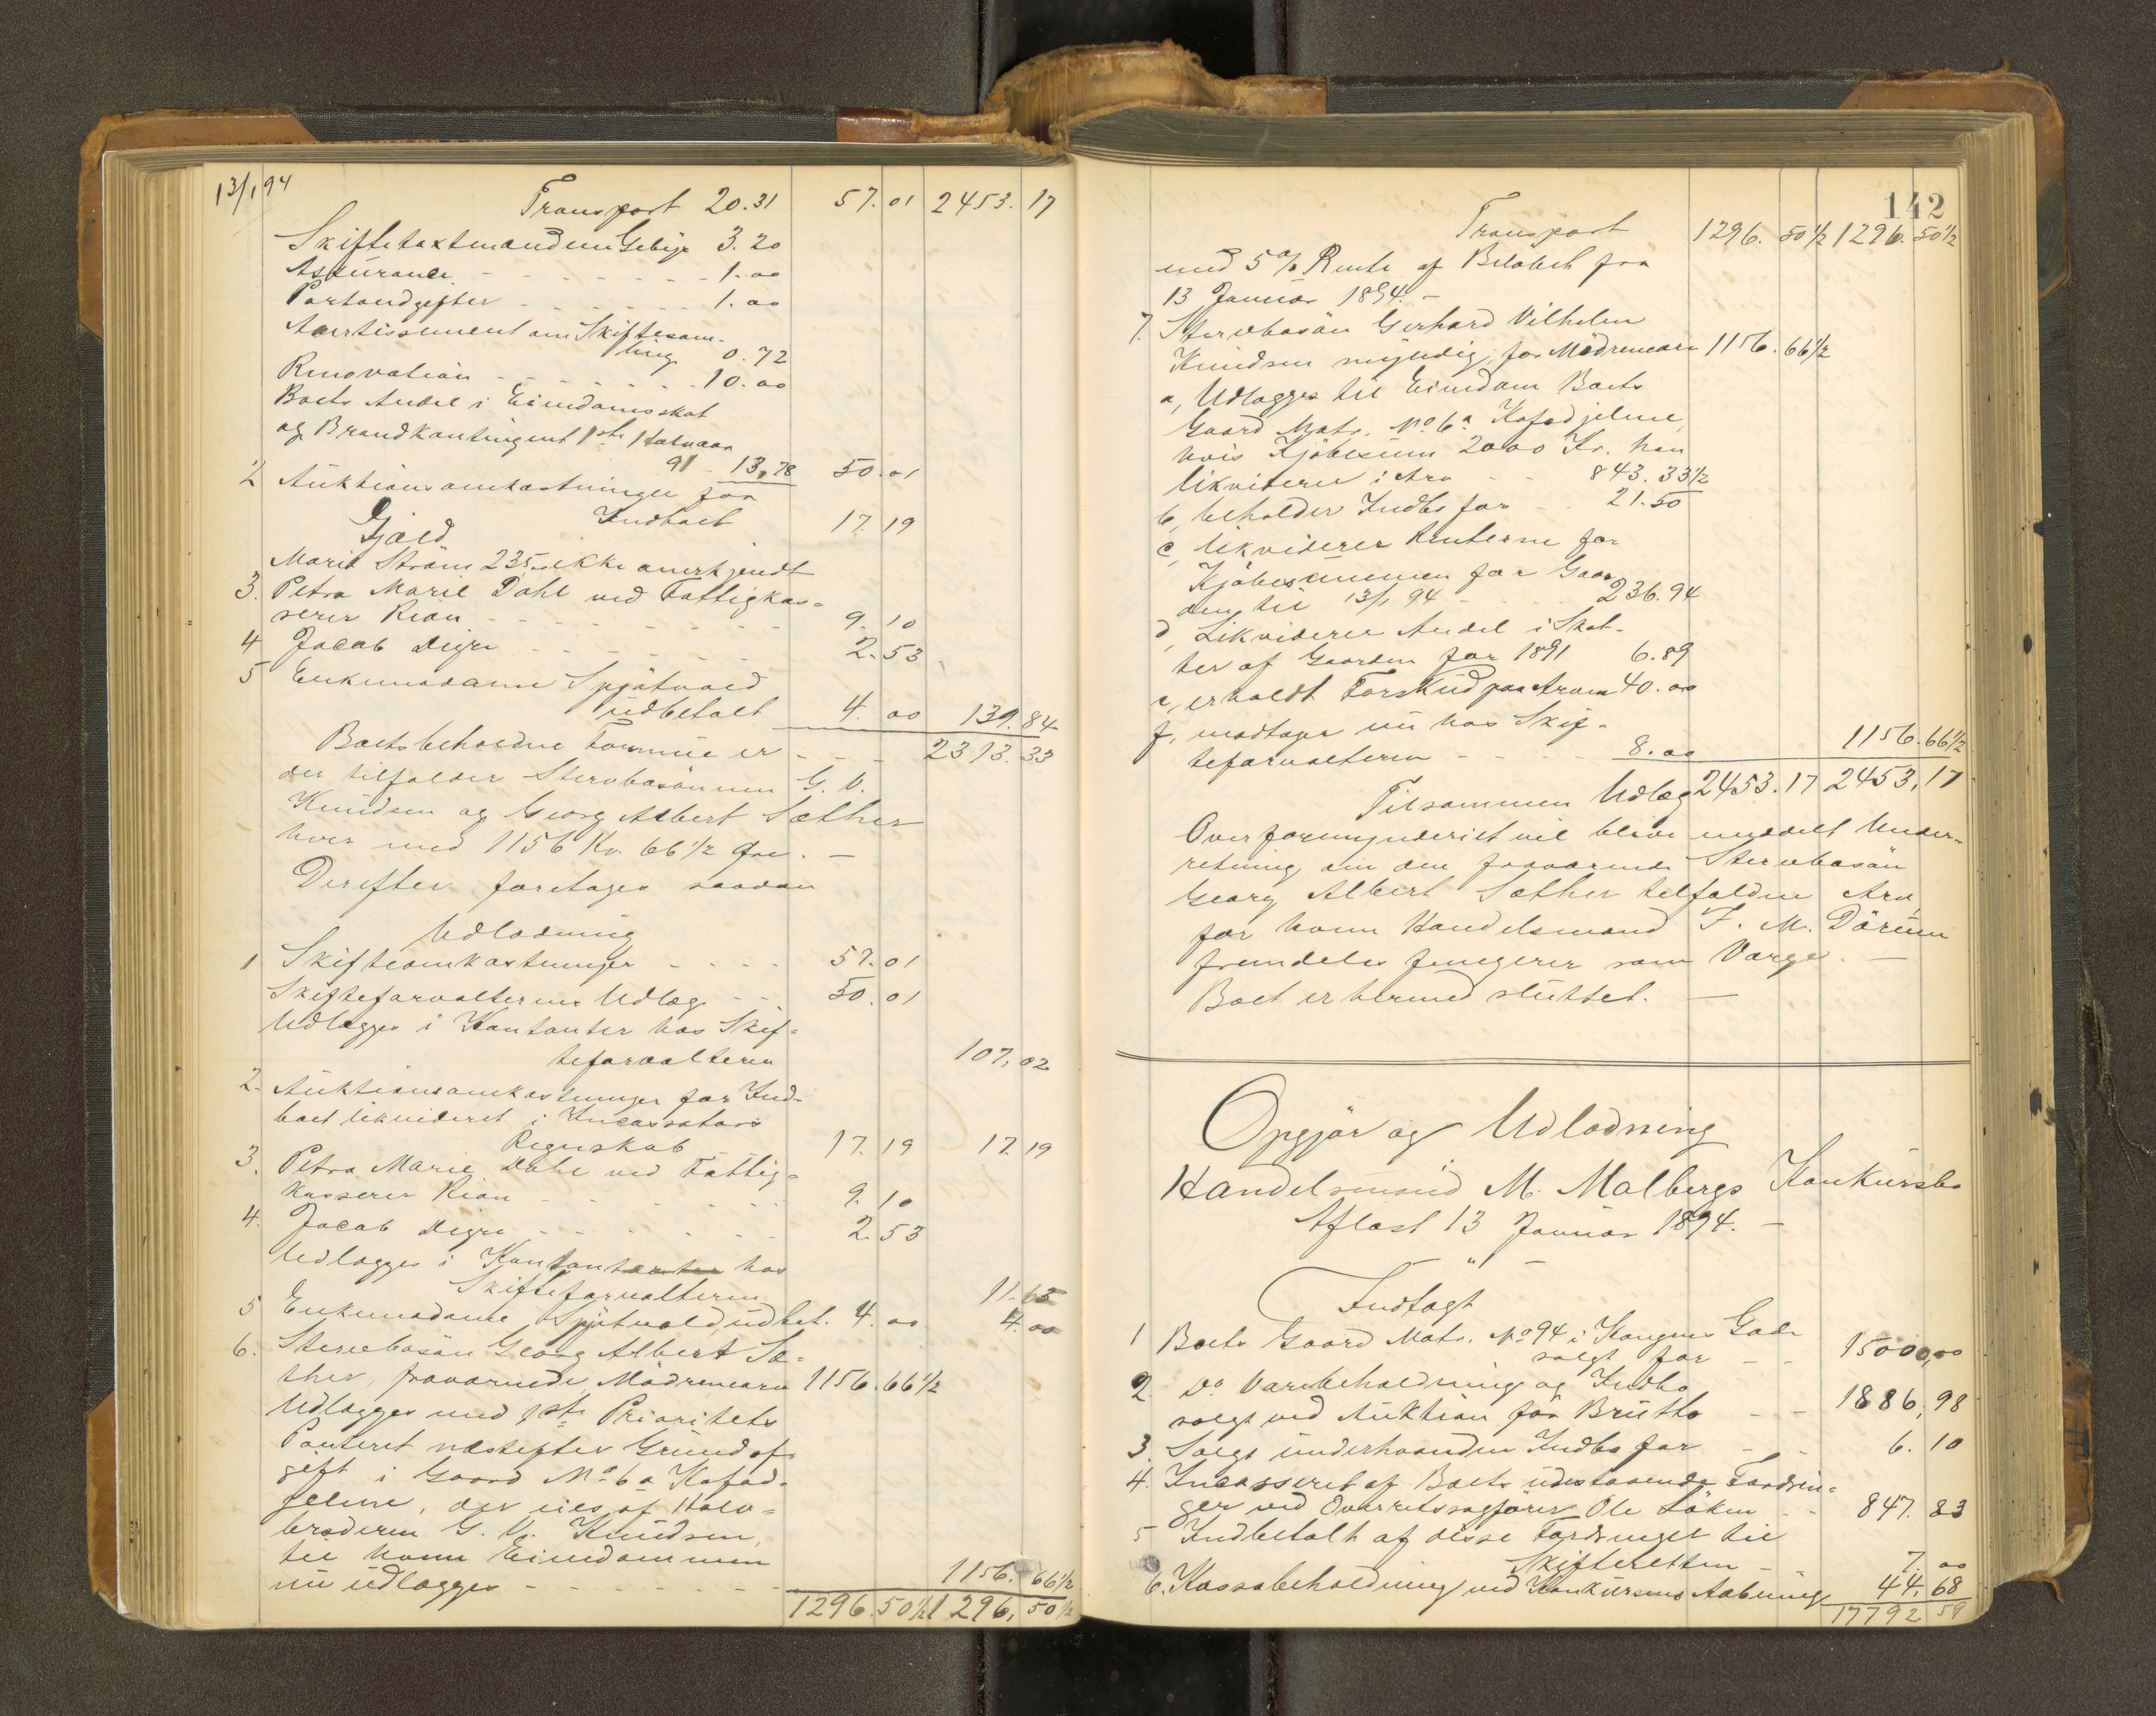 13/1 94
Transport 20.31 57.01 2453.17
Skiftetaxtmændenes Gebyr 3.20
Assurance 1.00
Portoudgifter 1.00
Avertissement om Skiftesam-
ling 0.72
Renovation 10.00
Boets Andel i Eiendomsskat
og Brandkontingent 1ste Halvaar
91 13,78 50.01
2 Auktionsomkostninger for
Indboet 17.19
Gjæld
Marie Strøm 235 ikke anerkjendt
3. Petra Marie Dahl ved Fattigkas-
serer Rian 9.10
4 Jacob Digre 2.53
5 Enkemadame Spjøtvold
udbetalt 4.00 139.84
Boets beholdne Formue er 2313.33
der tilfalder Stervbosønnen G. V.
Knudsen og Georg Albert Sæther
hver med 1156 Kr. 66 1/2 Øre. —
Derefter foretages saadan
Udlodning
1 Skifteomkostninger 57.01
Skifteforvalterens Udlæg 50.01
Udlægges i Kontanter hos Skif-
teforvalteren 107,02
2. Auktionsomkostninger for Ind-
boet likvideret i Incassators
Regnskab 17.19 17.19
3. Petra Marie Dahl ved Fattig-
kasserer Rian 9.10
4. Jacob Digre 2.53
Udlægges i Kontanter hos
Skifteforvalteren 11.63
5 Enkemadame Spjøtvold, udbet. 4.00 4.00
6. Stervbosøn Georg Albert Sæ-
ther, fraværende, Mødrenearv 1156.66 1/2
Udlægges med 1ste Prioritets
Panteret næstefter Grundaf-
gift i Gaard No 6a Kafad-
jelene, der eies af Halv-
broderen G. V. Knudsen,
til hvem Eiendommen
nu udlægges 1156.66 1/2
1296.50 1/2 1296,50 1/2
142
Transport 1296.50 1/2 1296.50 1/2
med 5 % Rente af Beløbet fra
13 Januar 1894. —
7. Stervbosøn Gerhard Vilhelm
Knudsen myndig, for Mødrenearv 1156.66 1/2
a, Udlægges til Eiendom Boets
Gaard Matr. No 6a Kafadjelene,
hvis Kjøbesum 2000 Kr. han
likviderer i Arv 843.33 1/2
b, beholder Indbo for 21.50
c, likviderer Renterne for
Kjøbesummen for Gaar-
den til 13/1 94 236.94
d, Likviderer Andel i Skat-
ter af Gaarden for 1891 6.89
e, erholdt Forskud paa Arven 40.00
f, modtager nu hos Skif-
teforvalteren 8.00 1156.66 1/2
Tilsammen Udlæg 2453.17 2453,17
Overformynderiet vil blive meddelt Under-
retning om den fraværende Stervbosøn
Georg Albert Sæther tilfaldne Arv,
for hvem Handelsmand F. M. Dørum
fremdeles fungerer som Værge. —
Boet er hermed sluttet. —
Opgjør og Udlodning
i
Handelsmand M. Malbergs Konkursbo
Aflæst 13 Januar 1894. —
Indtægt
1 Boets Gaard Matr. No 94 i Kongens Gade
solgt for 15000,00
2. Do Varebeholdning og Indbo
solgt ved Auktion for Brutto 1886,98
3. Solgt underhaanden Indbo for 6.10
4. Incasseret af Boets udestaaende Fordrin-
ger ved Overretssagfører Ole Løken 847.83
5 Indbetalt af disse Fordringer til
Skifteretten 7.00
6. Kassabeholdning ved Konkursens Aabning 44,68
17792 59